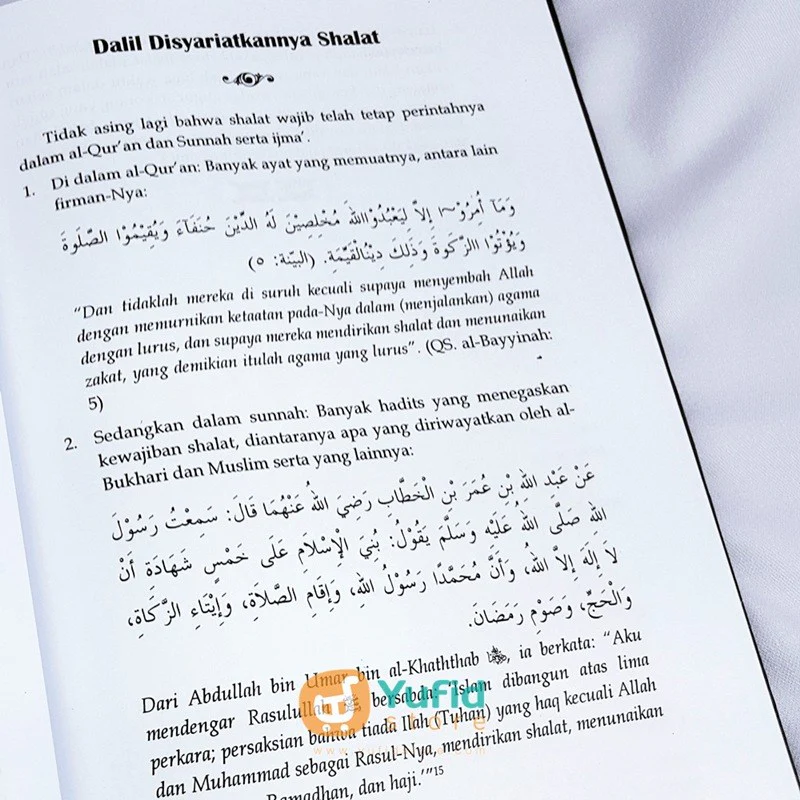 Dalil Disyariatkannya Shalat
Tidak asing lagi bahwa shalat wajib telah tetap perintahnya
dalam al-Qur'an dan Sunnah serta ijma'.
1. Di dalam al-Qur'an: Banyak ayat yang memuatnya, antara lain
firman-Nya:
وَمَآ أُمِرُوْٓا إِلاَّ لِيَعْبُدُوْااللهَ مُخْلِصِيْنَ لَهُ الدِّيْنَ حُنَفَآءَ وَيُقِيْمُوْا الصَّلَوةَ
وَيُؤْتُوْا االزَّكَوةَ وَذَلِكَ دِيْنُالْقَيِّمَةِ. (البيّنة: ٥)
"Dan tidaklah mereka di suruh kecuali supaya menyembah Allah
dengan memurnikan ketaatan pada-Nya dalam (menjalankan) agama
dengan lurus, dan supaya mereka mendirikan shalat dan menunaikan
zakat, yang demikian itulah agama yang lurus". (QS. al-Bayyinah:
5)
2. Sedangkan dalam sunnah: Banyak hadits yang menegaskan
kewajiban shalat, diantaranya apa yang diriwayatkan oleh al-
Bukhari dan Muslim serta yang lainnya:
عَنْ عَبْدِ اللهِ بْنِ عُمَرَ بْنِ الْخَطَّابِ رَضِيَ اللهُ عَنْهُمَا قَالَ: سَمِعْتُ رَسُوْلَ
اللهِ صَلَّى اللهُ عَلَيْهِ وَسَلَّمَ يَقُوْلُ: بُنِيَ الْإِسْلَامِ عَلَى خَمْسٍ شَهَادَةِ أَنْ
لاَ إِلَهَ إِلاَّ اللهُ، وَأَنَّ مُحَمَّدًا رَسُوْلُ اللهِ، وَإِقَامِ الصَّلاَةِ، وَإِيْتَاءِ الزَّكَاةِ،
وَالْحَجِّ، وَصَوْمِ رَمَضَانَ.
Dari Abdullah bin Umar bin al-Khaththab, ia berkata: "Aku
mendengar Rasulullah ﷺ bersabda: 'Islam dibangun atas lima
perkara; persaksian bahwa tiada Ilah (Tuhan) yang haq kecuali Allah
dan Muhammad sebagai Rasul-Nya, mendirikan shalat, menunaikan
Ramadhan, dan haji.'"15
Yufid
store